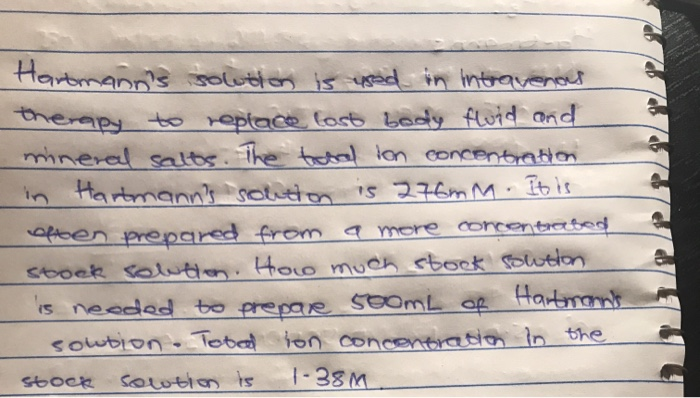 Hartmann's solution is used in intravenous
therapy to replace lost body fluid and
mineral salts. The total ion concentration
in Hartmann's solution is 276mM. It is
often prepared from a more concentrated
stock solution. How much stock solution
is needed to prepare 500mL of Hartmann's
solution. Total ion concentration in the
stock solution is 1.38M.